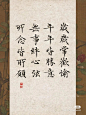 歲歲常歡愉
年年皆勝意
無事絆心弦
所念皆所願